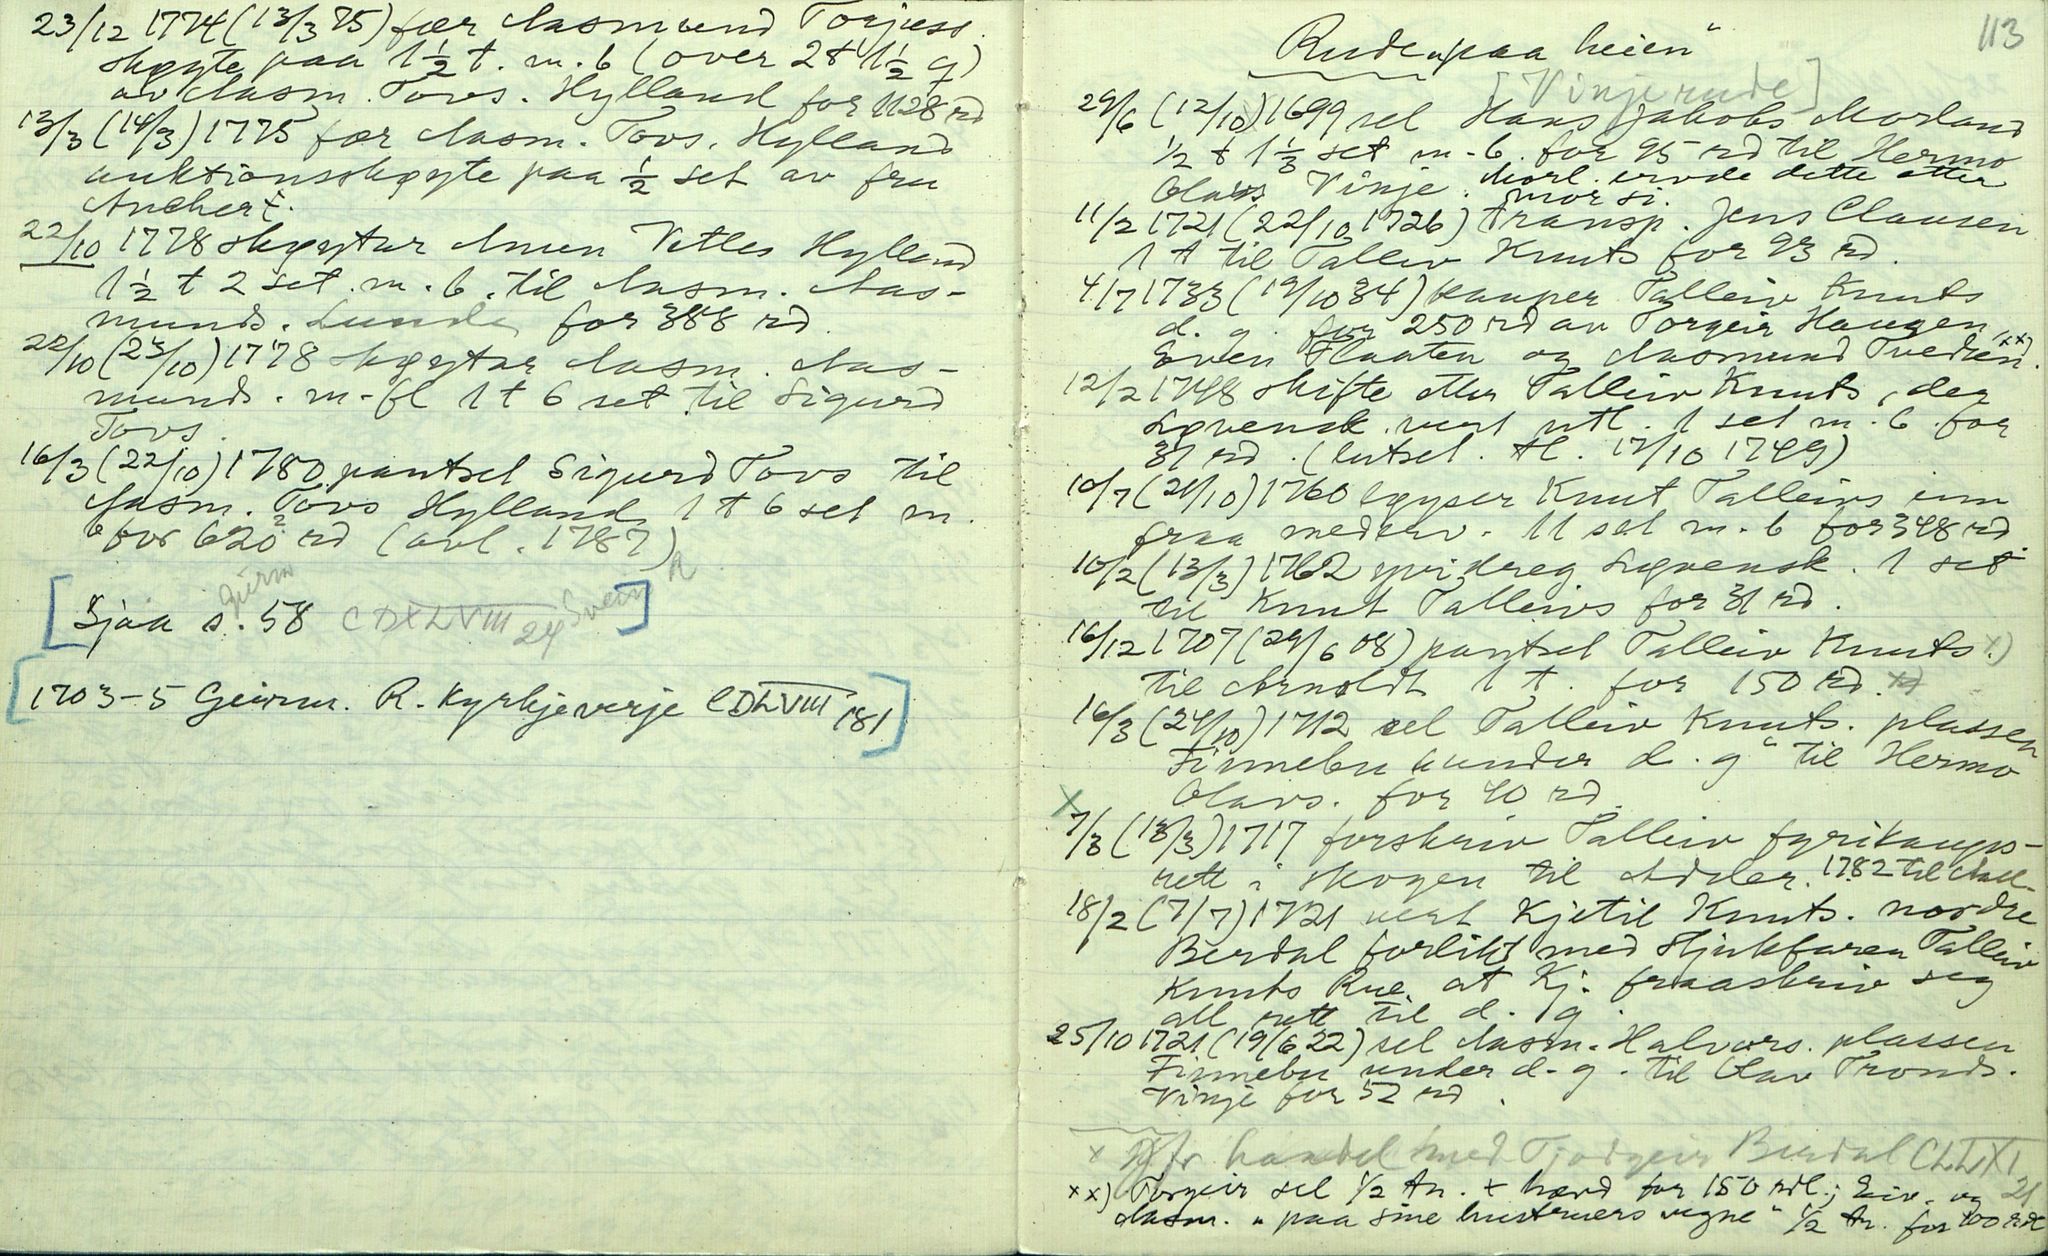 23/12 1774 (13/3 75) fær Aasmund Torjess.
skøyte paa 1½ t. m. b (over 2 t 1½ q)
av Aasm. Tovs. Hylland for 1128 rd
13/3 (14/3) 1775 fær Aasm. Tovs. Hylland
auktionsskøyte paa ½ set av fru
Anchert.
22/10 1778 skøytar Anun Vetles Hylland
1½ t 2 set. m. b. til Aasm. Aas-
munds. Lunde for 388 rd.
22/10 (23/10) 1778 skøytar Aasm. Aas-
munds. m-fl 1 t 6 set til Sigurd
Tovs.
16/3 (22/10) 1780 pantset Sigurd Tovs til
Aasm. Tovs Hylland 1 t 6 set m.
b for 620 rd (avl. 1787)
[Sjaa s. 58 CDXLVIII 24 Svein]
[1703-5 Geirm. R. Kyrkjeverje CDLVIII 181]
113
Rude „paa heien“
[Vinjerude]
29/6 (12/10) 1699 sel Hans Jakobs Morland
½ t 1⅓ set m. b. for 95 rd til Hermo
Olavs Vinje. Morl. ervde dette etter
mor si.
11/2 1721 (22/10 1726) transp. Jens Clausen
1 t til Talleiv Knuts for 93 rd.
4/7 1733 (19/10 34) kauper Talleiv Knuts
d. g. for 250 rd av Torgeir Haugen,
Even Flaaten og Aasmund Tvedten. xx)
12/2 1748 skifte etter Talleiv Knuts, der
Løvensk. vert utl. 1 set m. b. for
31 rd. (lutsel. tl. 17/10 1749)
10/7 (21/10) 1760 løyser Knut Talleivs inn
fraa mederv. 11 set m. b for 348 rd
10/2 (13/3) 1762 yvidreg Løvensk. 1 set
til Knut Talleivs for 31 rd.
16/12 1707 (29/6 08) pantset Talleiv Knuts x)
til Arnoldt 1 t. for 150 rd.
16/3 (24/10) 1712 sel Talleiv Knuts. plassen
Finnebu „under d. g“ til Hermo
Olavs. for 40 rd.
x
7/3 (13/3) 1717 forskriv Talleiv fyrikaups-
rett i skogen til Adeler. 1782 til Aall-
18/2 (7/7) 1721 vert Kjetil Knuts. nordre
Berdal forlikt med Stjukfaren Talleiv
Knuts Rue at Kj. fraaskriv seg
all rett til d. g.
25/10 1721 (19/6 22) sel Aasm. Halvors. plassen
Finnebu under d. g. til Olav Tronds.
Vinje for 52 rd.
x Jfr handel med Tjodgeir Berdal CLLXI 21
xx) Torgeir sel ½ tn. + hærd for 150 rdl.; Eiv. og
Aasm. „paa sine hustruers vegne“ ½ tn. for 100 rdl